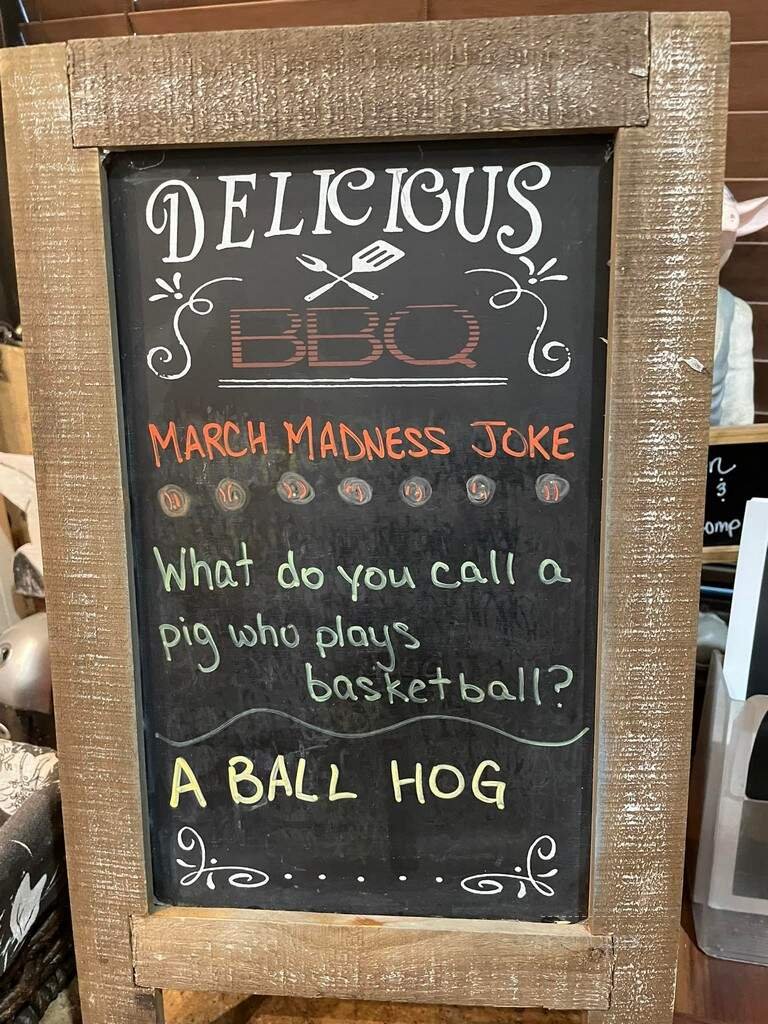 DELICIOUS
BBQ
MARCH MADNESS JOKE
What do you call a
pig who plays
basketball?
A BALL HOG
n
&
omp